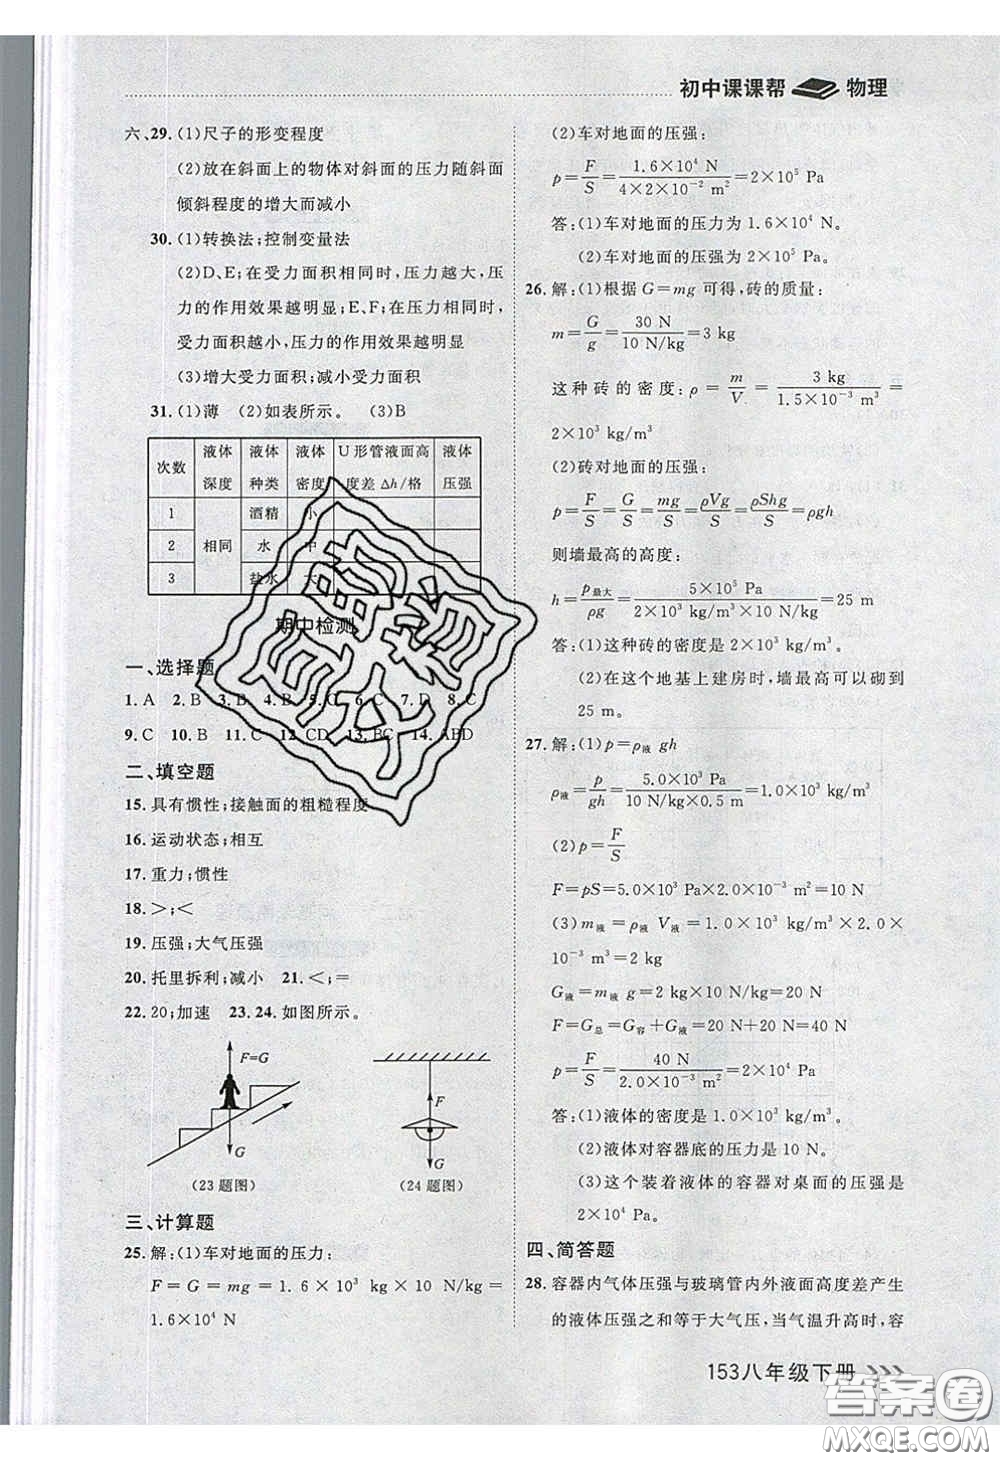 初中课课帮 物理
六、29.(1)尺子的形变程度
(2)放在斜面上的物体对斜面的压力随斜面
倾斜程度的增大而减小
30.(1)转换法;控制变量法
(2)D、E;在受力面积相同时,压力越大,压
力的作用效果越明显;E、F;在压力相同时,
受力面积越小,压力的作用效果越明显
(3)增大受力面积;减小受力面积
31.(1)薄 (2)如表所示。 (3)B
次数 液体深度 液体种类 液体密度 U形管液面高度差 Δh/格 液体压强
1 相同 酒精 小
2 水 中
3 盐水 大
期中检测
一、选择题
1.A 2.B 3.B 4.B 5.C 6.C 7.D 8.C
9.C 10.B 11.C 12.CD 13.BC 14.ABD
二、填空题
15.具有惯性;接触面的粗糙程度
16.运动状态;相互
17.重力;惯性
18.>;<
19.压强;大气压强
20.托里拆利;减小 21.<;=
22.20;加速 23.24.如图所示。
F=G
G
(23题图)
F
G
(24题图)
三、计算题
25.解:(1)车对地面的压力:
F=G=mg=1.6×10³ kg×10 N/kg=
1.6×10⁴ N
(2)车对地面的压强:
p=F/S=1.6×10⁴ N/4×2×10⁻² m²=2×10⁵ Pa
答:(1)车对地面的压力为 1.6×10⁴ N。
(2)车对地面的压强为 2×10⁵ Pa。
26.解:(1)根据 G=mg 可得,砖的质量:
m=G/g=30 N/10 N/kg=3 kg
这种砖的密度:ρ=m/V=3 kg/1.5×10⁻³ m³=
2×10³ kg/m³
(2)砖对地面的压强:
p=F/S=G/S=mg/S=ρVg/S=ρShg/S=ρgh
则墙最高的高度:
h=p最大/ρg=5×10⁵ Pa/2×10³ kg/m³×10 N/kg=25 m
答:(1)这种砖的密度是 2×10³ kg/m³。
(2)在这个地基上建房时,墙最高可以砌到
25 m。
27.解:(1)p=ρ液 gh
ρ液=p/gh=5.0×10³ Pa/10 N/kg×0.5 m=1.0×10³ kg/m³
(2)p=F/S
F=pS=5.0×10³ Pa×2.0×10⁻³ m²=10 N
(3)m液=ρ液 V液=1.0×10³ kg/m³×2.0×
10⁻³ m³=2 kg
G液=m液 g=2 kg×10 N/kg=20 N
F=G总=G容+G液=20 N+20 N=40 N
p=F/S=40 N/2.0×10⁻³ m²=2×10⁴ Pa
答:(1)液体的密度是 1.0×10³ kg/m³。
(2)液体对容器底的压力是 10 N。
(3)这个装着液体的容器对桌面的压强是
2×10⁴ Pa。
四、简答题
28.容器内气体压强与玻璃管内外液面高度差产生
的液体压强之和等于大气压,当气温升高时,容
153八年级下册
答案圈
MXQE.COM